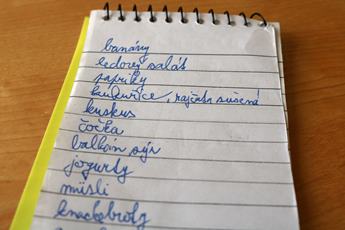 banány
ledový salát
papriky
kukuřice, rajčata sušená
kuskus
čočka
balkan sýr
jogurty
müsli
knackebroty